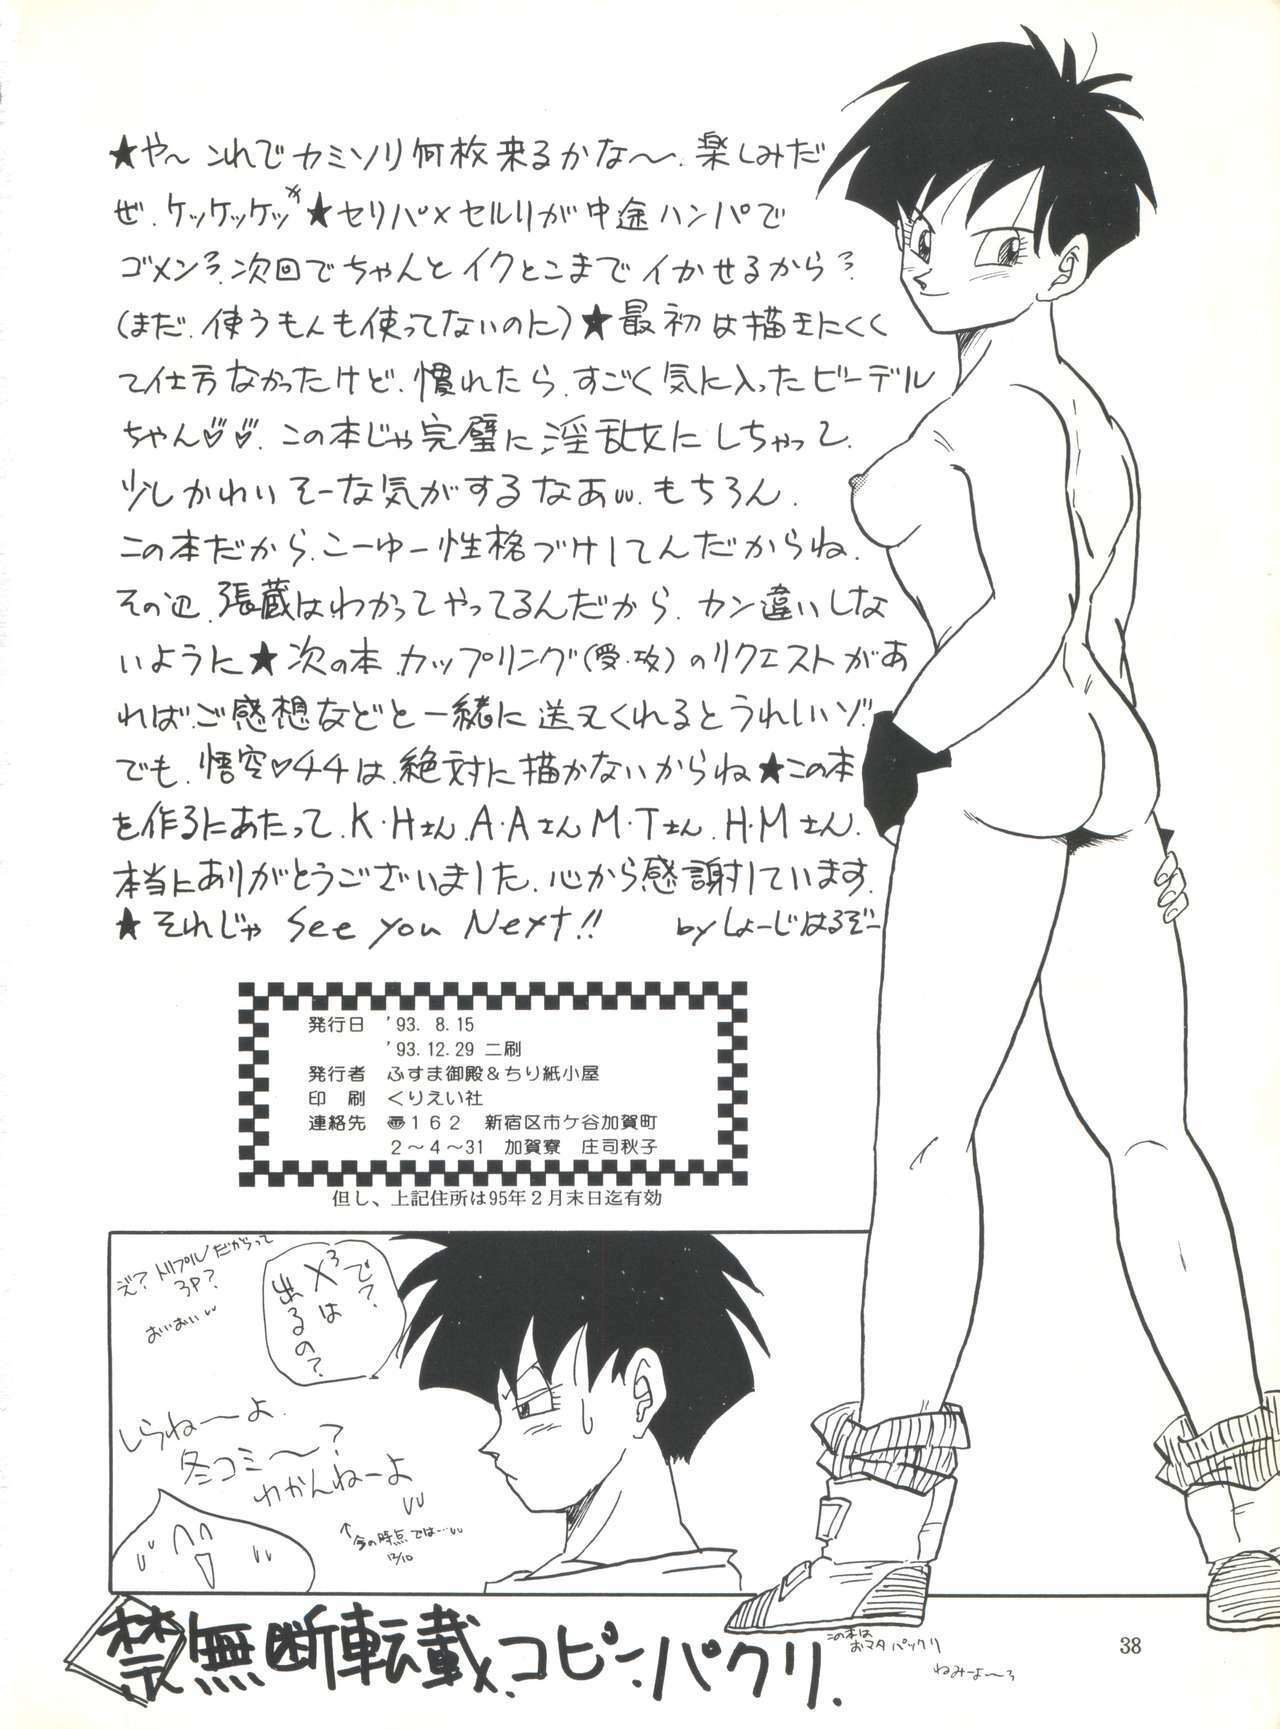 ★や～これでカミソリ何枚来るかな～、楽しみだ
ぜ、ケッケッケッ★セリパ×セルリが中途ハンパで
ゴメン、次回でちゃんとイクとこまでイかせるから
(まだ、使うもんも使ってないのに)★最初は描きにくく
て仕方なかったけど、慣れたら、すごく気に入ったビーデル
ちゃん♡♡、この本じゃ完璧に淫乱女にしちゃって、
少しかわいそーな気がするなあ、もちろん、
この本だから、こーゆー性格づけしてんだからね、
その辺、張蔵はわかってやってるんだから、カン違いしな
いように★次の本、カップリング(受・攻)のリクエストがあ
れば、ご感想などと一緒に送ってくれるとうれしいゾ
でも、悟空♡チチは、絶対に描かないからね★この本
を作るにあたって、K・Hさん、A・Aさん M・Tさん、H・Mさん、
本当にありがとうございました、心から感謝しています。
★それじゃ See you Next!! by しょーじはるぞー
発行日 '93. 8.15
'93.12.29 二刷
発行者 ふすま御殿&ちり紙小屋
印 刷 くりえい社
連絡先 〠162 新宿区市ケ谷加賀町
2～4～31 加賀寮 庄司秋子
但し、上記住所は95年2月末日迄有効
で?
X³は
出るの?
え?トリプルだからって
3P?
おいおい
しらねーよ、
冬コミ～?
わかんねーよ
↑今の時点では…
12/10
禁無断転載、コピー、パクリ、
この本は
おマタパックリ
38